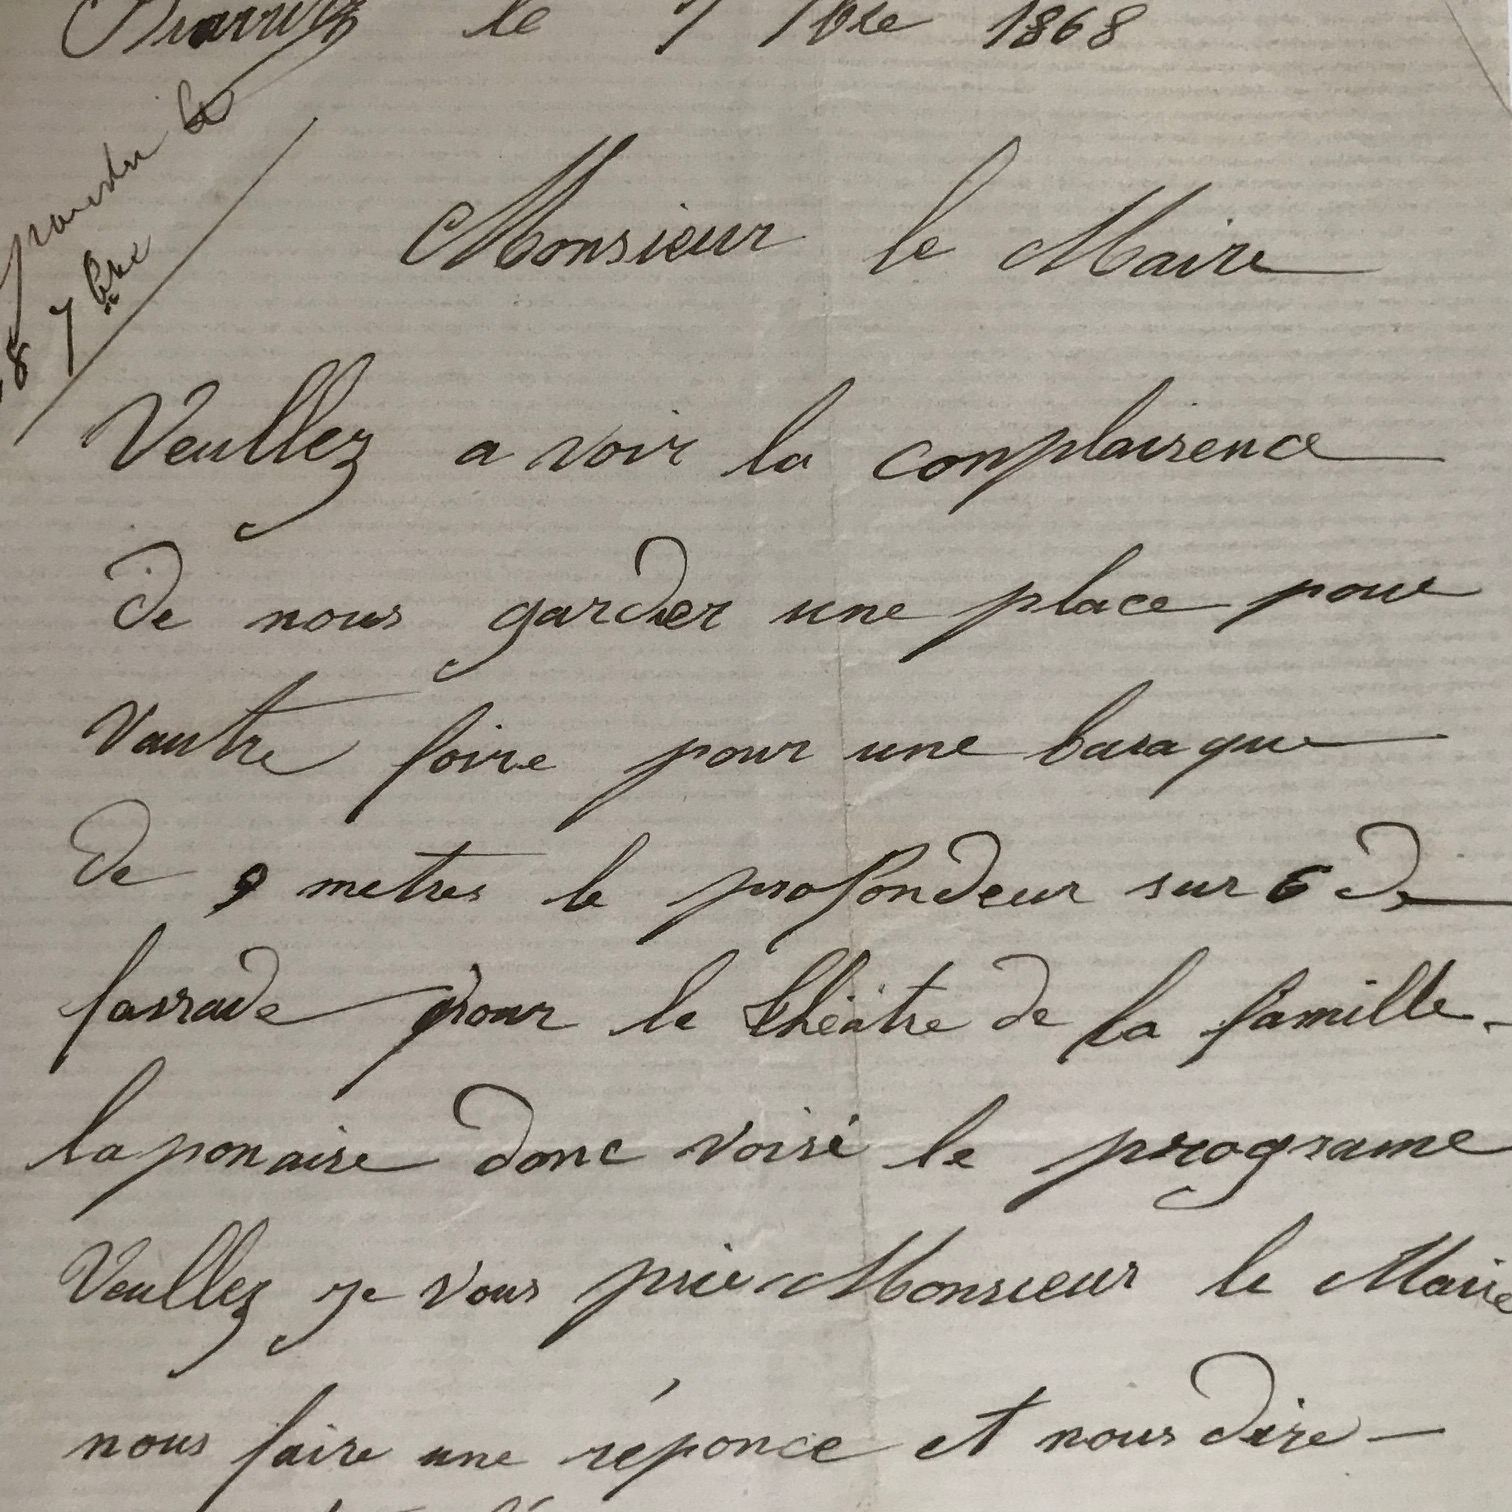 Biarritz le 7 7bre 1868
le
8 7bre
Monsieur le Maire
Veullez a voir la conplairence
de nous garder une place pour
vautre foire pour une baraque
de 9 metres le profondeur sur 6 de
fassade pour le théâtre de la famille
laponaise donc voisi le programe
Veullez je vous prie Monsieur le Maire
nous faire une réponce et nous dire —